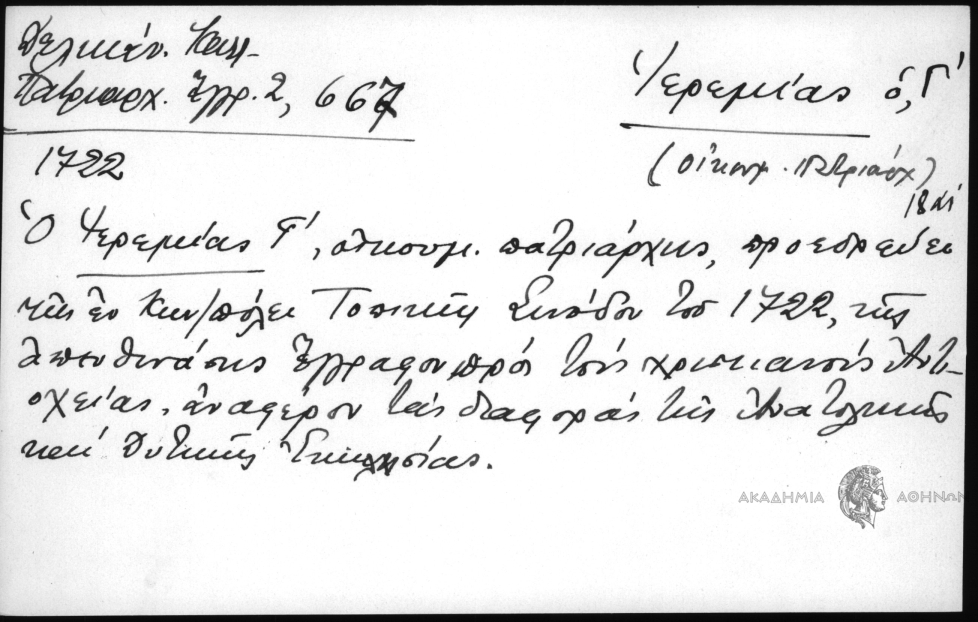 Δελικάν. Καλ-
Πατριαρχ. Ἔγγρ. 2, 667
Ἱερεμίας ὁ, Γ΄
1722
(Οἰκουμ. πατριάρχ)
18 αἰ
Ὁ Ἱερεμίας Γ΄, οἰκουμ. πατριάρχης, προεδρεύει
τῆς ἐν Κων/πόλει Τοπικῆς Συνόδου τοῦ 1722, τῆς
ἀπευθυνάσης ἔγγραφον πρός τούς χριστιανούς Ἀντι-
οχείας, ἀναφέρον τάς διαφοράς τῆς Ἀνατολικῆς
καί Δυτικῆς Ἐκκλησίας.
ΑΚΑΔΗΜΙΑ ΑΘΗΝΩΝ